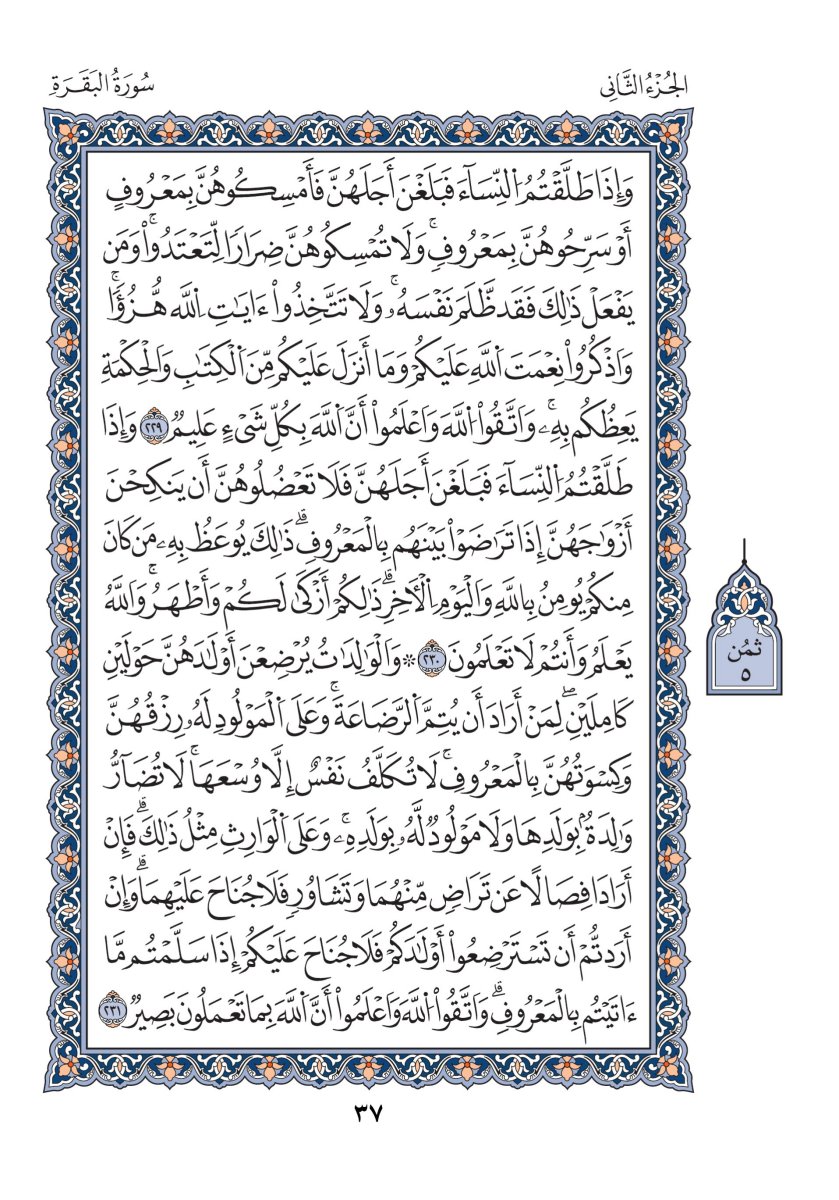 الجُزْءُ الثَّانِى
سُورَةُ البَقَرَةِ
وَإِذَا طَلَّقْتُمُ اُ۬لنِّسَآءَ فَبَلَغْنَ أَجَلَهُنَّ فَأَمْسِكُوهُنَّ بِمَعْرُوفٍ
أَوْ سَرِّحُوهُنَّ بِمَعْرُوفٖۚ وَلَا تُمْسِكُوهُنَّ ضِرَارٗا لِّتَعْتَدُواْۚ وَمَن
يَفْعَلْ ذَٰلِكَ فَقَد ظَّلَمَ نَفْسَهُۥۚ وَلَا تَتَّخِذُوٓاْ ءَايَٰتِ اِ۬للَّهِ هُزُؤٗاۚ
وَاَذْكُرُواْ نِعْمَتَ اَ۬للَّهِ عَلَيْكُمْ وَمَا أَنزَلَ عَلَيْكُم مِّنَ اَ۬لْكِتَٰبِ وَالْحِكْمَةِ
يَعِظُكُم بِهِۦۚ وَاتَّقُواْ اُ۬للَّهَ وَاعْلَمُواْ أَنَّ اَ۬للَّهَ بِكُلِّ شَےْءٍ عَلِيمٞ ٢٢٩ وَإِذَا
طَلَّقْتُمُ اُ۬لنِّسَآءَ فَبَلَغْنَ أَجَلَهُنَّ فَلَا تَعْضُلُوهُنَّ أَن يَنكِحْنَ
أَزْوَٰجَهُنَّ إِذَا تَرَٰضَوْاْ بَيْنَهُم بِالْمَعْرُوفِۗ ذَٰلِكَ يُوعَظُ بِهِۦ مَن كَانَ
مِنكُمْ يُومِنُ بِاللَّهِ وَالْيَوْمِ اِ۬لْأٓخِرِۗ ذَٰلِكُمْ أَزْكَىٰ لَكُمْ وَأَطْهَرُۚ وَاللَّهُ
يَعْلَمُ وَأَنتُمْ لَا تَعْلَمُونَ ٢٣٠ ۞ وَالْوَٰلِدَٰتُ يُرْضِعْنَ أَوْلَٰدَهُنَّ حَوْلَيْنِ
كَامِلَيْنِۖ لِمَنْ أَرَادَ أَن يُتِمَّ اَ۬لرَّضَاعَةَۚ وَعَلَى اَ۬لْمَوْلُودِ لَهُۥ رِزْقُهُنَّ
وَكِسْوَتُهُنَّ بِالْمَعْرُوفِۚ لَا تُكَلَّفُ نَفْسٌ إِلَّا وُسْعَهَاۚ لَا تُضَآرُّ
وَٰلِدَةُۢ بِوَلَدِهَا وَلَا مَوْلُودٞ لَّهُۥ بِوَلَدِهِۦۚ وَعَلَى اَ۬لْوَارِثِ مِثْلُ ذَٰلِكَۗ فَإِنْ
أَرَادَا فِصَالًا عَن تَرَاضٖ مِّنْهُمَا وَتَشَاوُرٖ فَلَا جُنَاحَ عَلَيْهِمَاۗ وَإِنْ
أَرَدتُّمْ أَن تَسْتَرْضِعُواْ أَوْلَٰدَكُمْ فَلَا جُنَاحَ عَلَيْكُمْ إِذَا سَلَّمْتُم مَّا
ءَاتَيْتُم بِالْمَعْرُوفِۗ وَاتَّقُواْ اُ۬للَّهَ وَاعْلَمُواْ أَنَّ اَ۬للَّهَ بِمَا تَعْمَلُونَ بَصِيرٞ ٢٣١
ثُمُن
٥
٣٧